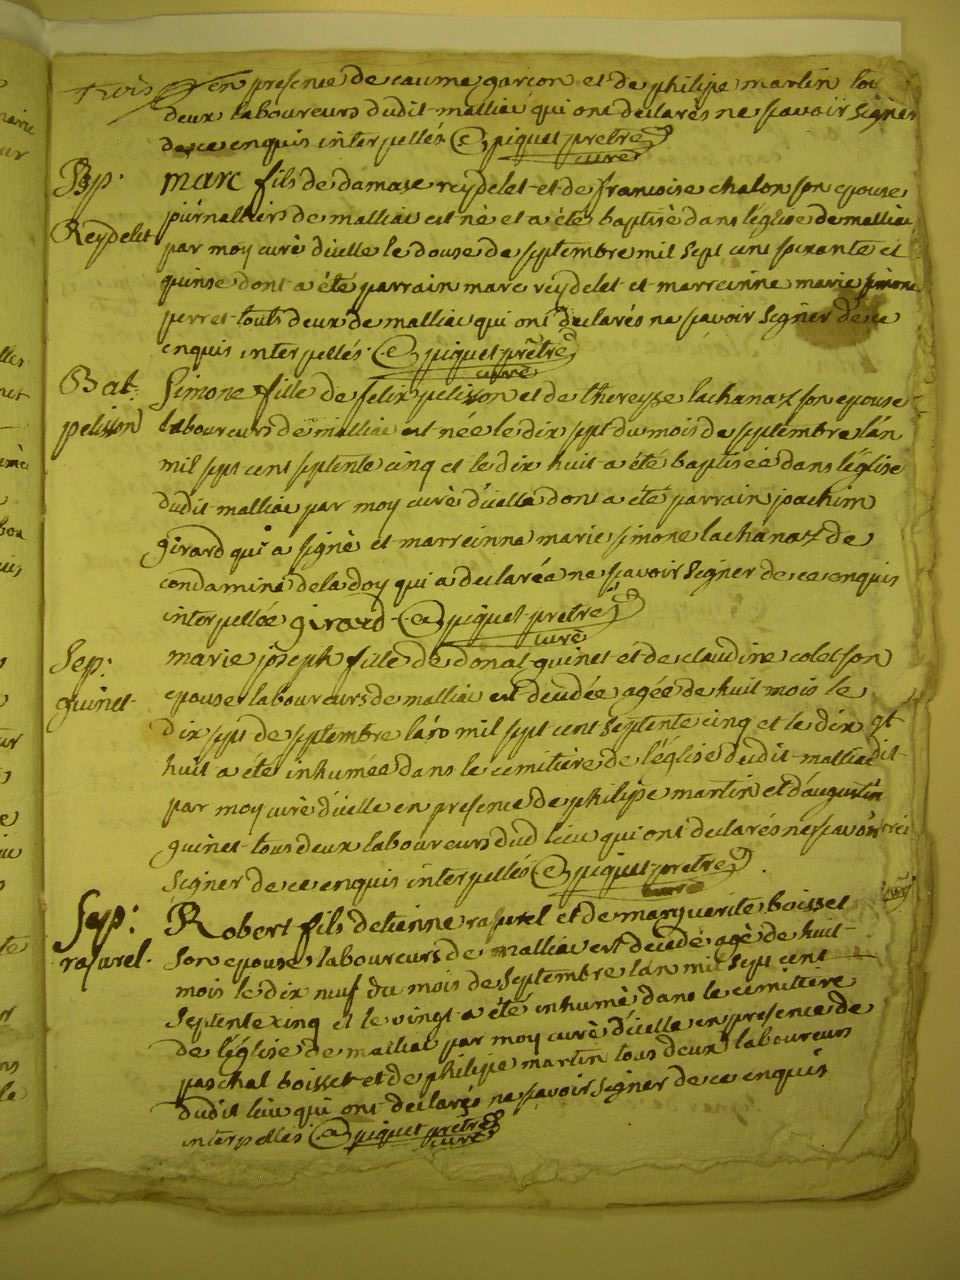 trois en presence de caume garcon et de philipe martin tou
deux laboureurs dudit malliac qui ont declarés ne scavoir signer
de ce enquis interpellés piquet prêtre
curé
Bp. marc fils de damase reydelet et de francoise chalon son epouse
Reydelet journaliers de malliac est né et a étés baptisé dans l'église de malliac
par moy curé d'icelle le douse de septembre mil sept cent soixante et
quinse dont a été parrain marc reydelet et marreinne marie simone
perret touts deux de malliac qui ont declarés ne scavoir signer de ce
enquis interpellés piquet prêtre
curé
Bat. Simone fille de felix pelisson et de thereyse lachanaz son epouse
pelisson laboureurs de malliac est née le dix sept du mois de septembre l'an
mil sept cent septente cinq et le dix huit a été baptisée dans l'église
dudit malliac par moy curé d'icelle dont a été parrain joachim
girard qui a signé et marreinne marie simone lachanaz de
condamine de la doy qui a declarée ne scavoir signer de ce enquis
interpellée girard piquet prêtre
curé
Sep: marie joseph fille de donat guinet et de claudine colet son
guinet epouse laboureurs de malliac est decedée agée de huit mois le
dix sept de septembre l'an mil sept cent septente cinq et le dix
huit a été inhumée dans le cemitiere de l'église dudit malliac
par moy curé d'icelle en presence de philipe martin et d'augustin
guinet tous deux laboureurs dud lieu qui ont declarés ne scavoir
signer de ce enquis interpellés piquet prêtre
curé
Sep: Robert fils d'etienne rasurel et de marguerite boisset
rasurel. son epouse laboureurs de malliac est decedé agé de huit
mois le dix neuf du mois de septembre l'an mil sept cent
septente cinq et le vingt a été inhumé dans le cemitiere
de l'église de malliac par moy curé d'icelle en presence de
paschal boisset et de philipe martin tous deux laboureurs
dudit lieu qui ont declarés ne scavoir signer de ce enquis
interpellés piquet prêtre
curé